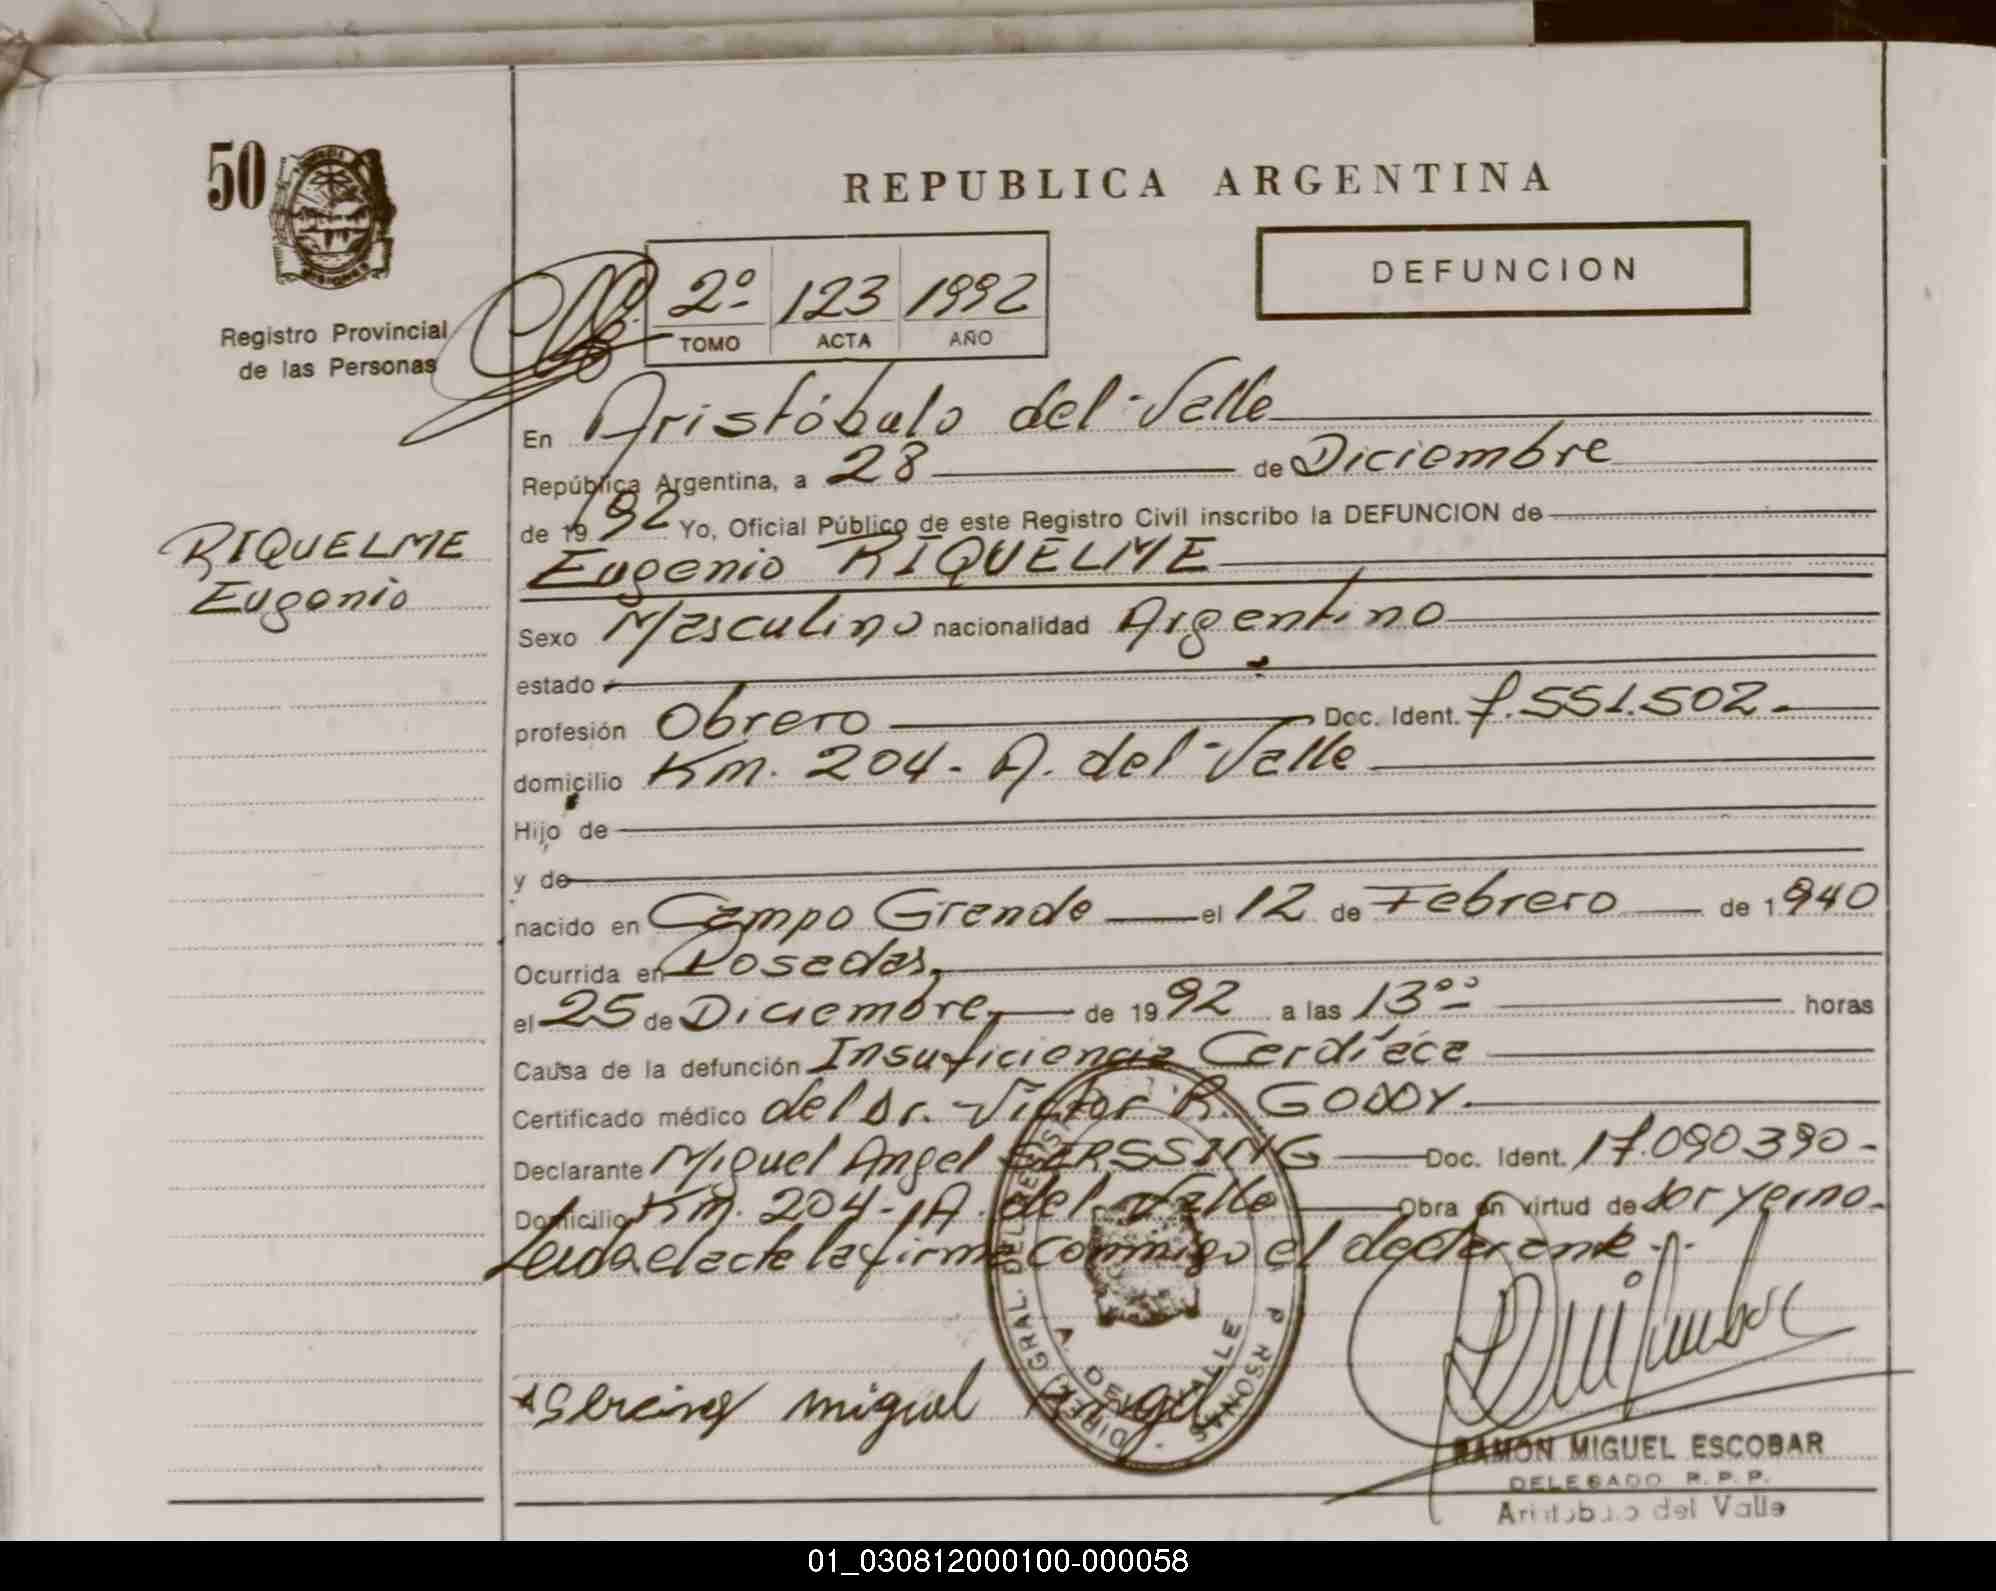 50
Registro Provincial
de las Personas
REPUBLICA ARGENTINA
DEFUNCION
2º 123 1992
TOMO ACTA AÑO
En Aristóbulo del Valle
República Argentina, a 28 de Diciembre
de 1992 Yo, Oficial Público de este Registro Civil inscribo la DEFUNCION de
RIQUELME
Eugenio
Eugenio RIQUELME
Sexo Masculino nacionalidad Argentino
estado
profesión Obrero Doc. Ident. 7.551.502.-
domicilio Km. 204- A. del Valle
Hijo de
y de
nacido en Campo Grande el 12 de Febrero de 1940
Ocurrida en Posadas,
el 25 de Diciembre, de 1992 a las 13ºº horas
Causa de la defunción Insuficiencia Cardíaca
Certificado médico del Dr. Victor R. GODOY.
Declarante Miguel Angel Doc. Ident. 17.090.390-
Domicilio Km. 204- A. del Valle Obra en virtud de ser yerno.
Leida el acta la firma conmigo el declarante.-
miguel Angel
DIREC. GRAL. DEL REGIST P RSONAS
DEL VALLE
RAMON MIGUEL ESCOBAR
DELEGADO R. P. P.
Aristobulo del Valle
01_030812000100-000058